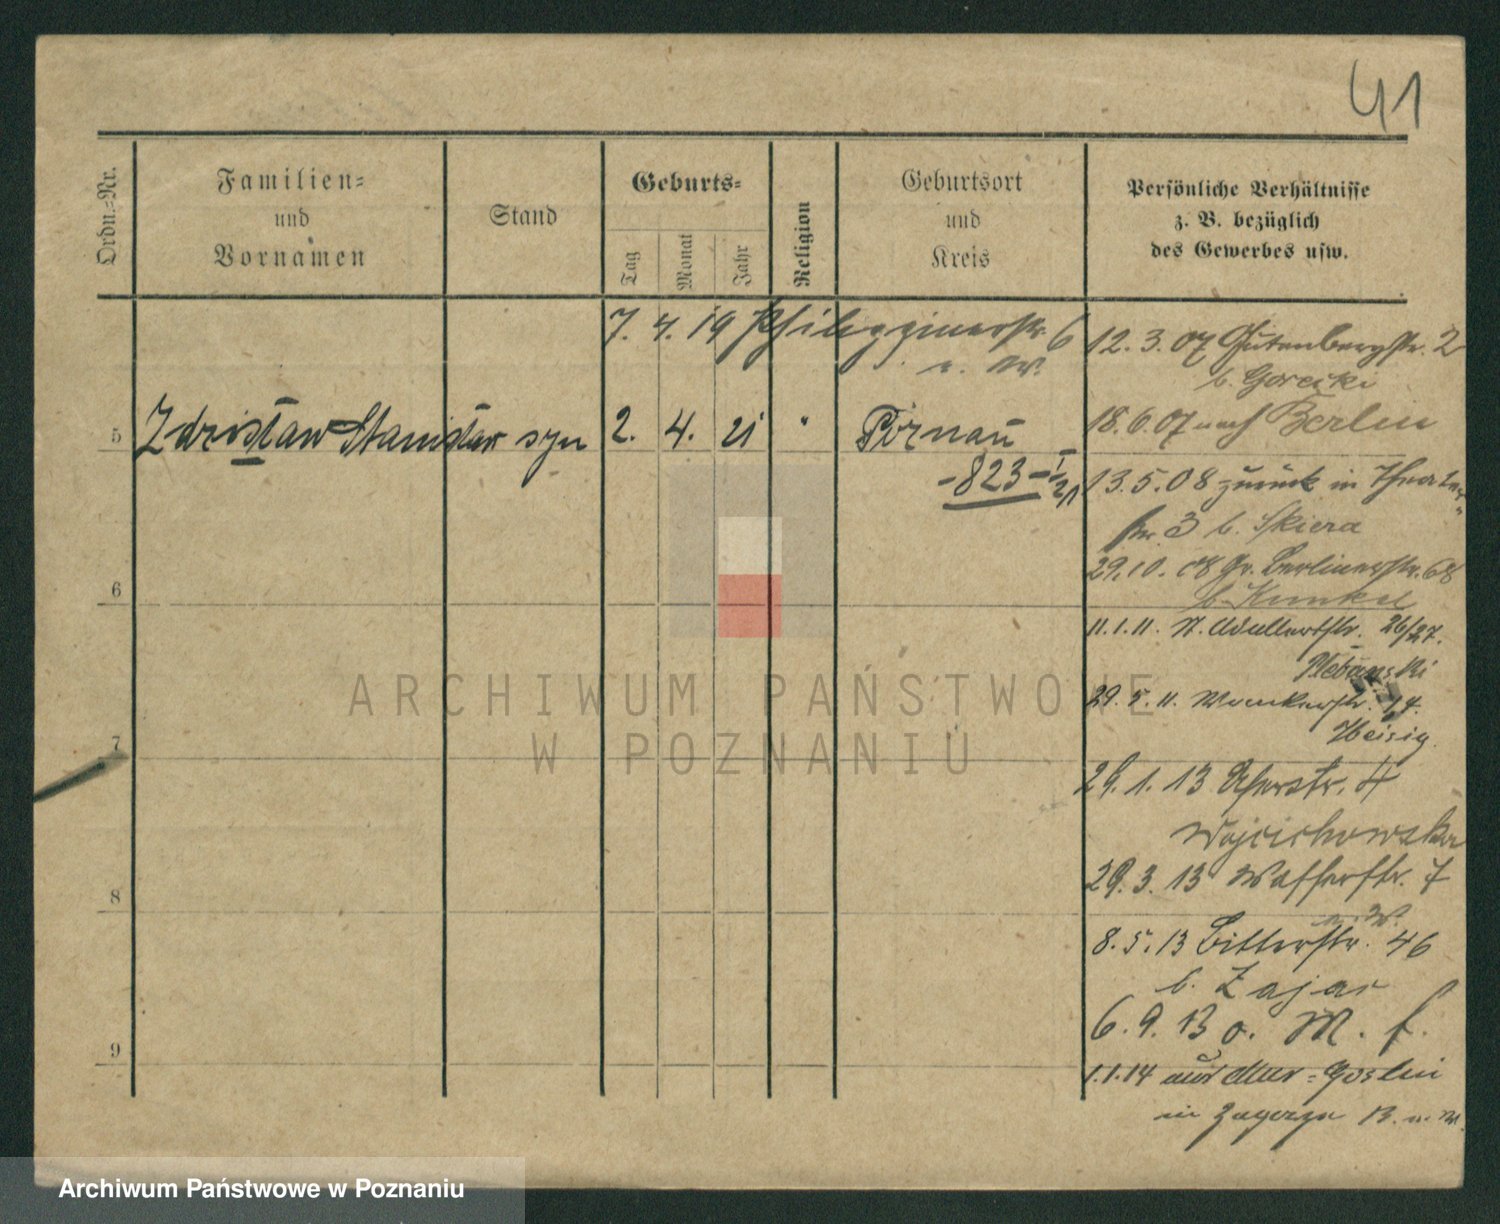 41
Ordn.-Nr.
Familien-
und
Vornamen
Stand
Geburts-
Tag
Monat
Jahr
Religion
Geburtsort
und
Kreis
Persönliche Verhältnisse
z. B. bezüglich
des Gewerbes usw.
7. 4. 19 Philippinerstr. 6
n. W.
5 Zdzisław Stanisław syn 2. 4. 21 "
- 823 - I/21
6
7
8
9
12. 3. 07 Gutenbergstr. 2
b. Gorecki
18. 6. 07 nach Berlin
13. 5. 08 zurück in Theater-
str. 3 b. Skiera
29. 10. 08 Gr. Berlinerstr. 68
b. Kunkel
11. 1. 11. St. Adalbertstr. 26/27.
Plebanski
29. 5. 11. 14.
Heisig.
29. 1. 13 4
Wojciechowska
29. 3. 13 Wasserstr. 7
n. W.
8. 5. 13 Bitterstr. 46
b. Zajac
6. 9. 13 o. M. f.
1. 1. 14 aus Mur-Goslin
in B. n. W.
ARCHIWUM PAŃSTWOWE
W POZNANIU
Archiwum Państwowe w Poznaniu